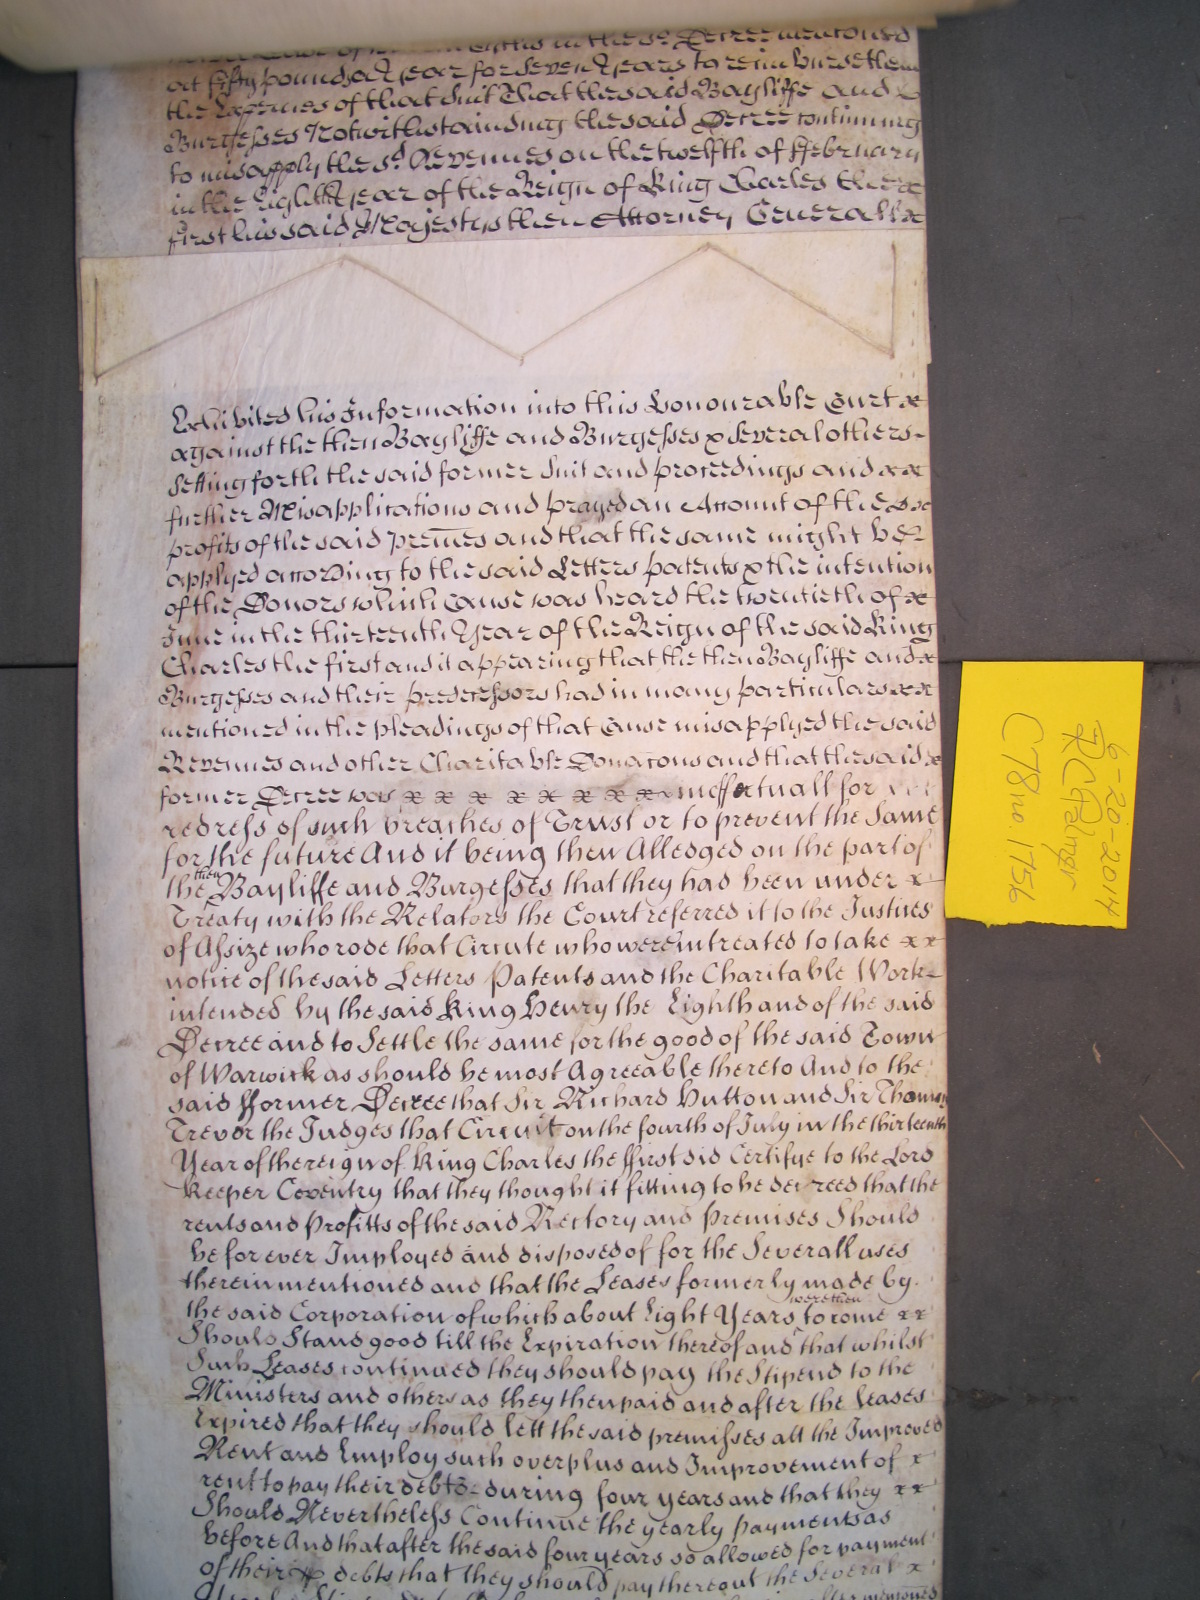 in the sd. Decree menconed
at fifty pounds a year for seven years to reimburse them
the Expences of that suit That the said Bayliffe and
Burgesses Notwithstanding the said Decree continuing
to misapply the sd. Revenues on the twelfth of ffebruary
in the Eighth year of the Reign of King Charles the x
first his said Majestys then Attorney Generall x
Exhibited his Information into this Honourable Court x
against the then Bayliffe and Burgesses & several others
Setting forth the said former Suit and proceedings and x x
further Misapplications and prayed an Account of the
profits of the said premes and that the same might be
applyed according to the said Letters patents & the intention
of the Donors which Cause was heard the twentieth of x
June in the thirteenth Year of the Reign of the said King
Charles the first and it appearing that the then Bayliffe and x
Burgesses and their predecessors had in many particulars x x
mentioned in the pleadings of that Cause misapplyed the said
Revenues and other Charitable Donacons and that the said x
former Decree was x x x x x x x x ineffectuall for
redress of such breaches of Trust or to prevent the Same
for the future And it being then Alledged on the part of
the then Bayliffe and Burgesses that they had been under x
Treaty with the Relators the Court referred it to the Justices
of Assize who rode that Circute who were intreated to take x x
notice of the said Letters Patents and the Charitable Work
intended by the said King Henry the Eighth and of the said
Decree and to Settle the same for the good of the said Town
of Warwick as should be most Agreeable thereto And to the
said fformer Decree that Sir Richard Hutton and Sir Thomas
Trevor the Judges that Circuit on the fourth of July in the thirteenth
Year of the reign of King Charles the ffirst did Certifye to the Lord
Keeper Coventry that they thought it fitting to be decreed that the
rents and Profitts of the said Rectory and Premises Should
be for ever Imployed and disposed of for the Severall uses
therein mentioned and that the Leases formerly made by
the said Corporation of which about Eight Years were then to come x x
Should Stand good till the Expiration thereof and that whilst
Such Leases continued they should pay the Stipend to the
Ministers and others as they then paid and after the leases
Expired that they should lett the said premisses att the Improved
Rent and Employ such overplus and Improvement of x
rent to pay their debts during four years and that they x x
Should Nevertheless Continue the yearly Payments as
before And that after the said four years so allowed for payment
of their debts that they should pay thereout the Several x
6-20-2014
C78 no. 1756